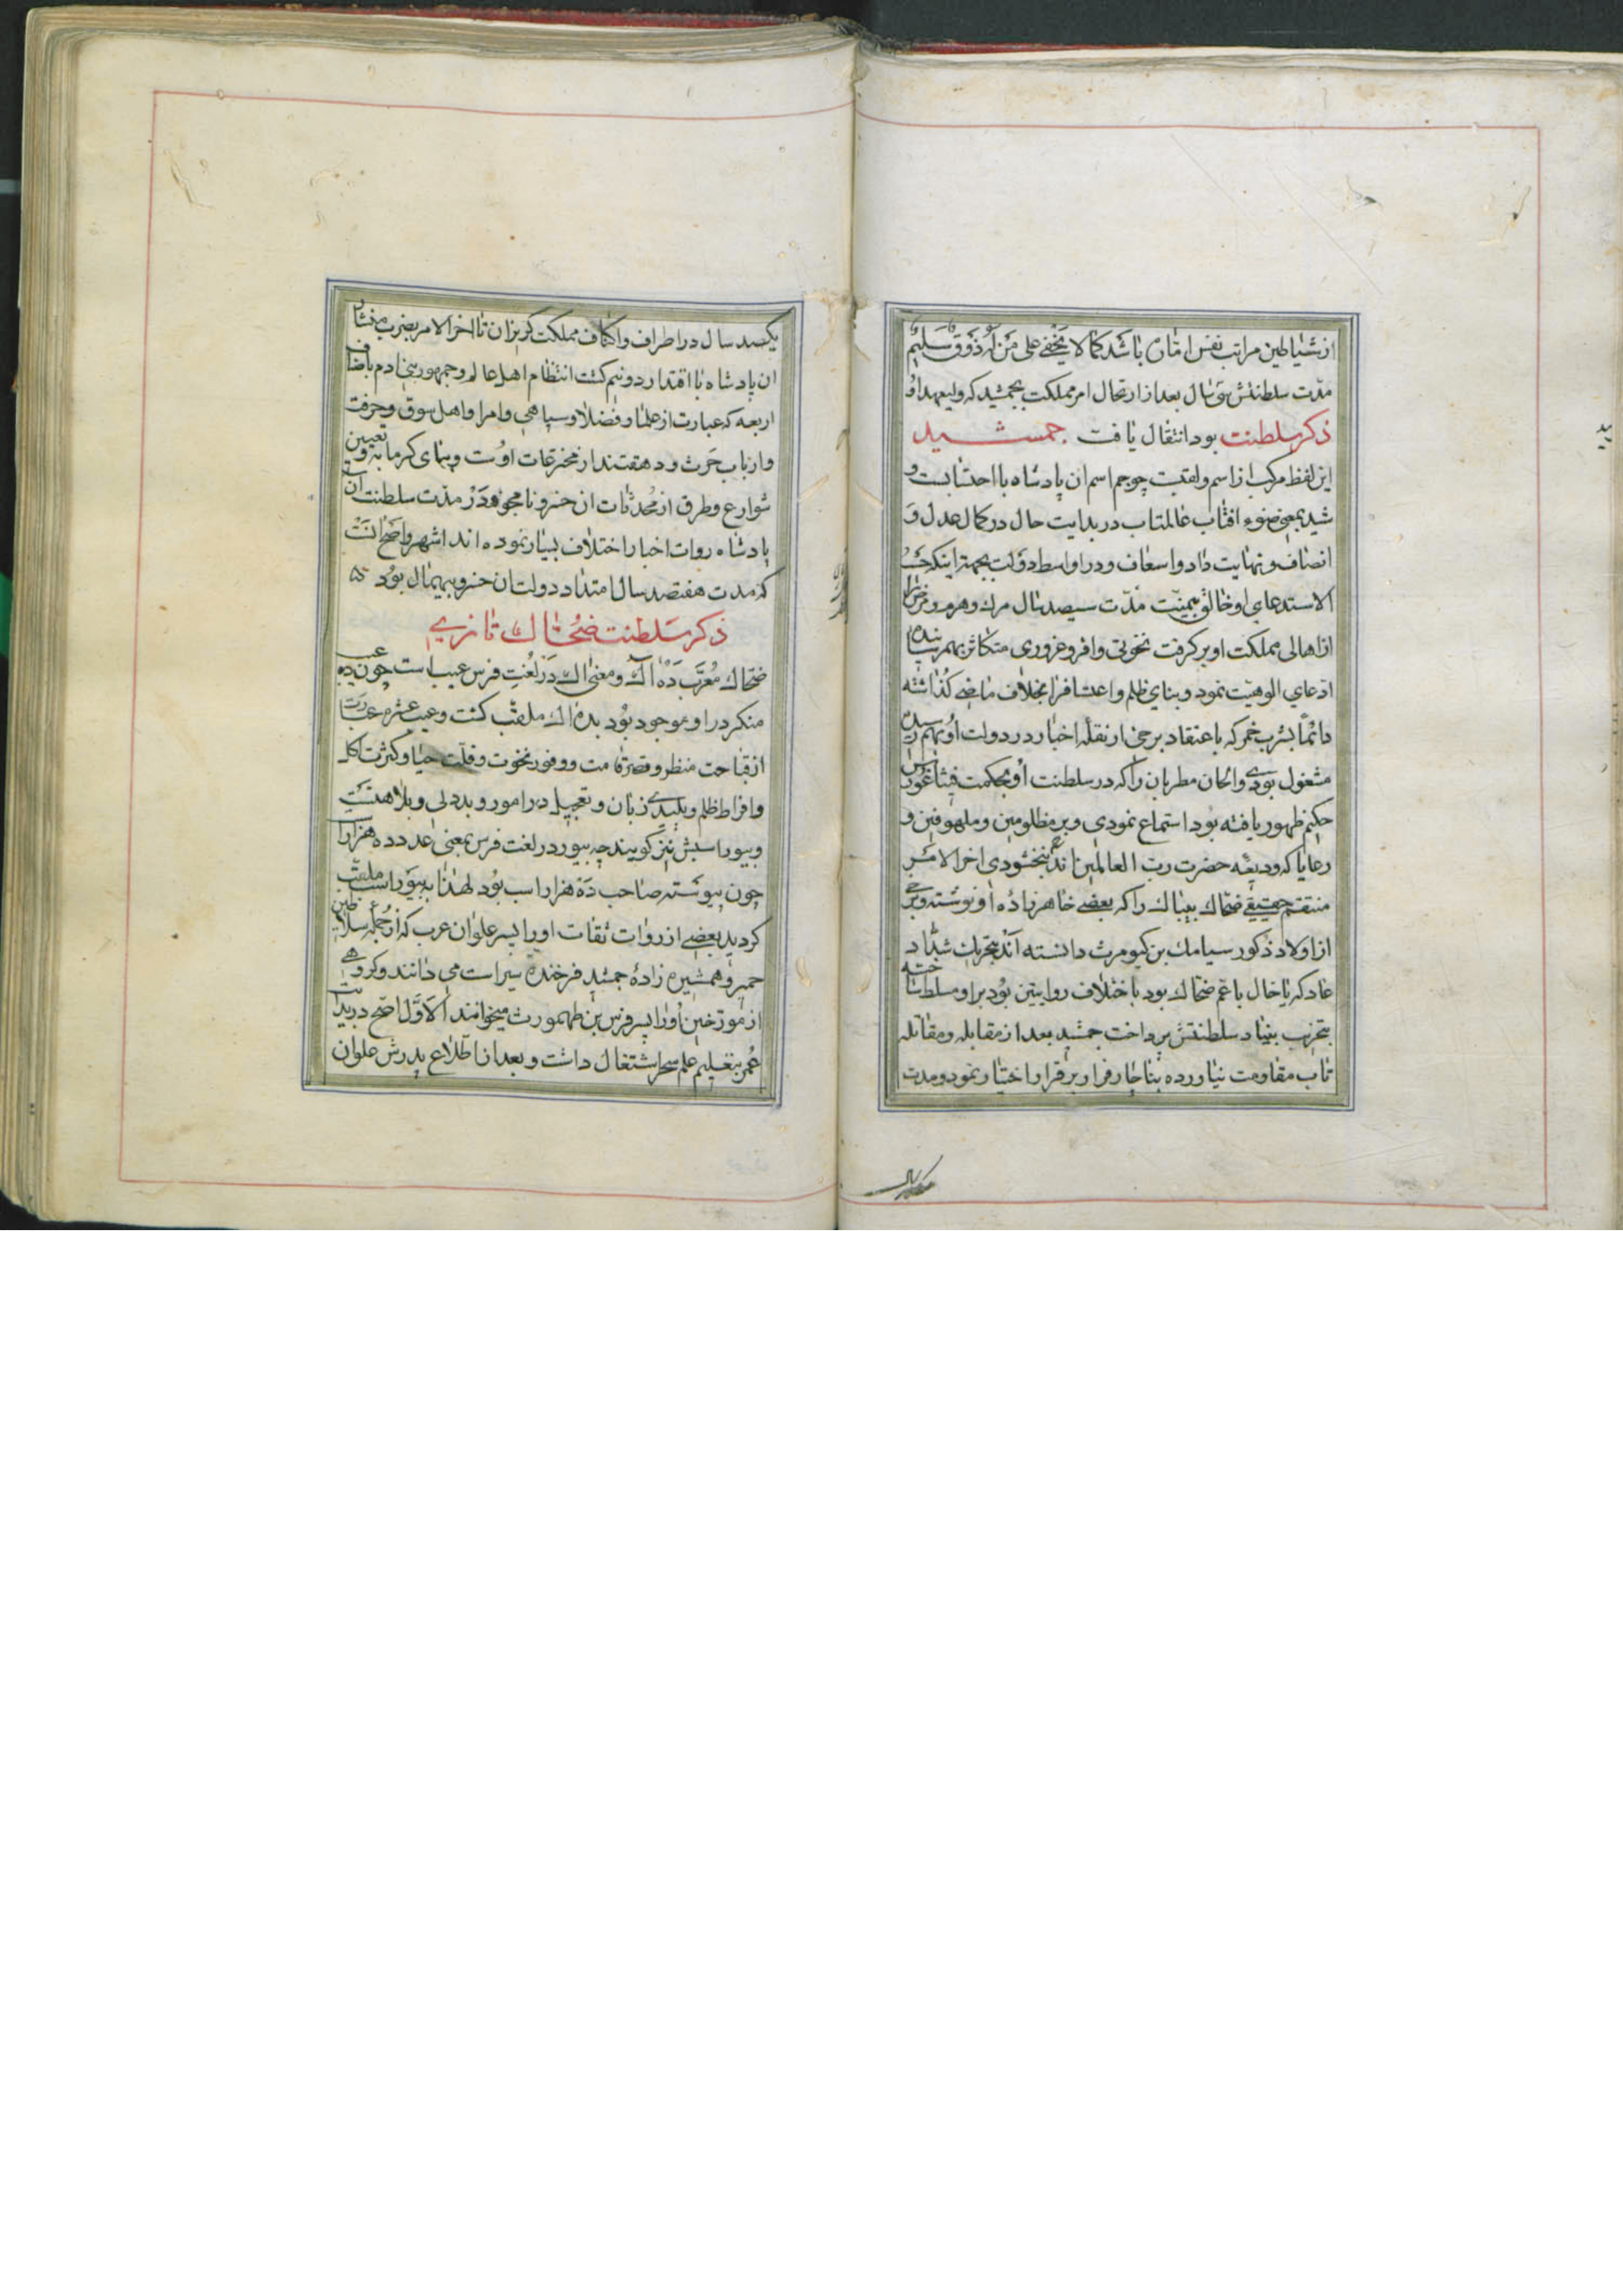 از شیاطین مراتب نفس اماره باشد کما لا یخفی علی من له ذوق سلیم
مدّت سلطنتش سی سال بعد از ارتحال امر مملکت بجمشید که ولیعهد او
ذکر سلطنت بود انتقال یافت جمشید
این لفظ مرکب از اسم و لقبست چو جم اسم ان پادشاه با احتشابست و
شید بمعنی ضوء افتاب عالمتاب در بدایت حال در کمال عدل و
انصاف و نهایت داد و اسعاف و در اواسط دولت بجهة اینکه حسب
الاستدعای او خالق بیمنّت مدّت سیصد سال مرك و هرم و مرض را
از اهالی مملکت او بر کرفت نخوتی وافر و غروری متکاثر بهم رسانیده
ادّعای الوهیّت نمود و بنای ظلم و اعتسافرا بخلاف ماضی کذاشته
دائماً بشرب خمر که باعتقاد برخی از نقلهٔ اخبار در دولت او بهم رسیده
مشغول بودی و الحان مطربان را که در سلطنت او بحکمت فیثاغورس
حکیم ظهور یافته بود استماع نمودی و بر مظلومین و ملهوفین و
رعایا که ودیعهٔ حضرت ربّ العالمین اند نبخشودی اخر الامر
منتقم حقیقی ضحّاك بیباك را که بعضی خاهرزادهٔ او نوشته و برخی
از اولاد ذکور سیامك بن کیومرث دانسته اند بتحریك شدّاد
عاد که یا خال یا عم ضحّاك بود باختلاف روایتین بود بر او مسلط ساخته
بتخریب بنیاد سلطنتش پرداخت جمشید بعد از مقابله و مقاتله
تاب مقاومت نیاورده بناچار فرار بر قرار اختیار نمود و مدت
یکصد سال
یکصد سال در اطراف و اکناف مملکت کریزان تا اخر الامر بضرب منشار
ان پادشاه با اقتدار دو نیم کشت انتظام اهل عالم و جمهور بنی ادم باصناف
اربعه که عبارت از علما و فضلا و سپاهی و امرا و اهل سوق و حرفت
و ارباب حرث و دهقنتند از مخترعات اوست و بنای کرمابه و تعیین
شوارع و طرق از مُحدثات ان خسرو نامجو و در مدّت سلطنت ان
پادشاه روات اخبار اختلاف بسیار نموده اند اشهر و اصحّ انست
که مدت هفتصد سال امتداد دولت ان خسرو بیهمال بود
ذکر سلطنت ضحّاك تازی
ضحّاك مُعرّب ده آك و معنی اك در لُغتِ فرس عیب است چون ده عیب
منکر در او موجود بود بده اك ملقب کشت و عیب عشره عبارت
از قباحت منظر و قصر قامت و وفور نخوت و قلّت حیا و کثرت اکل
و افراط ظلم و پلیدی زبان و تعجیل در امور و بددلی و بلاهتست
و بیوراسبش نیز کویند چه بیور در لغت فرس بمعنی عدد ده هزار
چون پیوسته صاحب ده هزار اسب بود لهذا به بیوراسب ملقّب
کردید بعضی از روات ثقات او را پسر علوان عرب که از جمله سلاطین
حمیر و همشیره زادهٔ جمشید فرخنده سیر است می دانند و کروهی
از مورّخین او را پسر فرس بن طهمورث میخوانند الاوّل اصح در بدایت
عُمر بتعلیم علم سحر اشتغال داشت و بعد از اطّلاع پدرش علوان